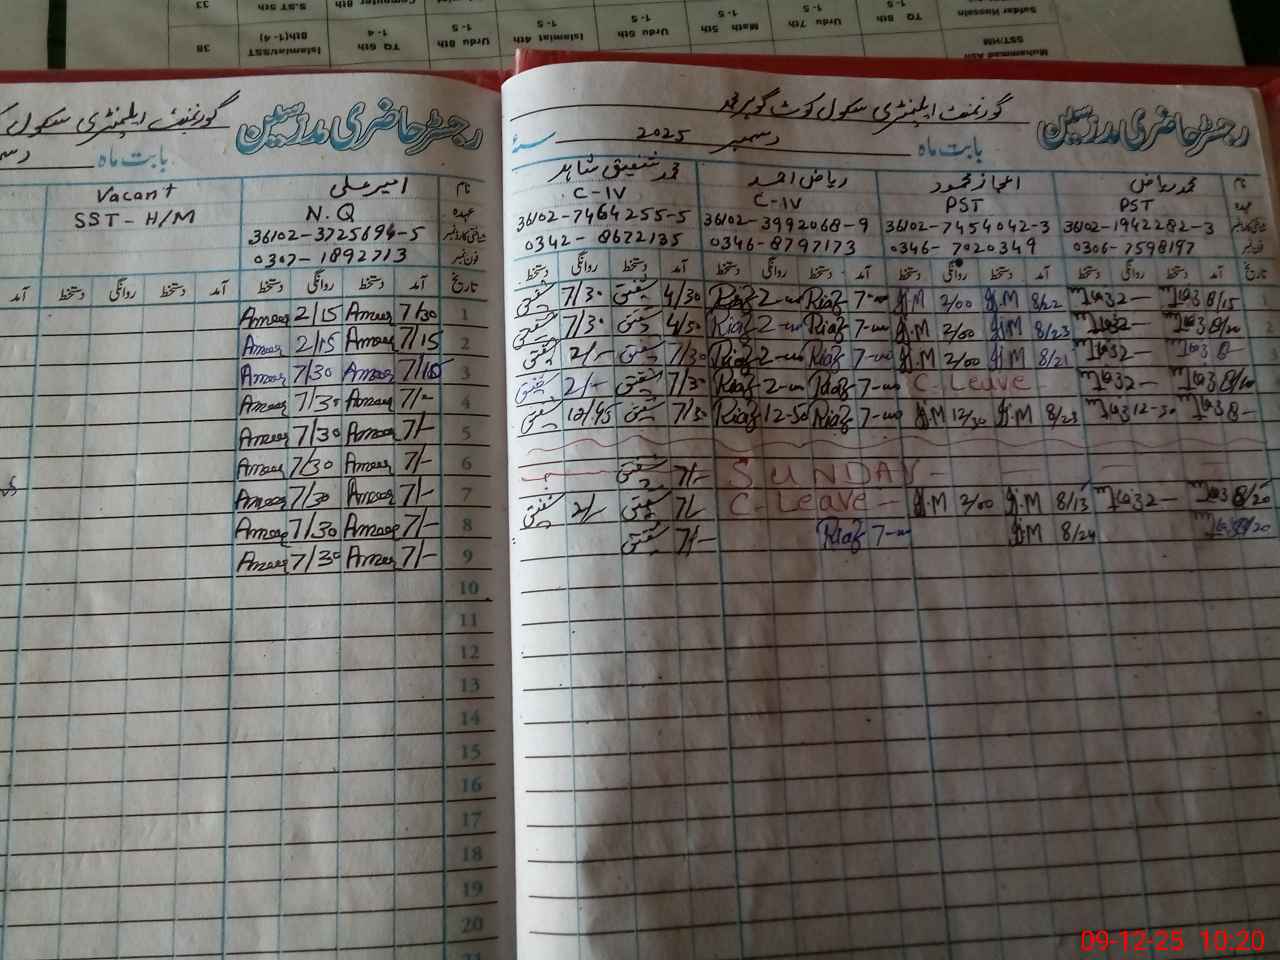 Muhammad Asif
SST/HM
Safdar Hussain
1-5
TQ 8th
1-5
Urdu 7th
1-5
Math 5th
1-5
Urdu 6th
1-5
Islamiat 4th
1-5
Urdu 8th
1-5
TQ 6th
1-4
Computer 8th
Islamiat/SST
8th(1-4)
S.ST 5th
38
33
رجسٹر حاضری مدرسین گورنمنٹ ایلیمنٹری سکول کوٹ گوہر
بابت ماہ دسمبر 2025 سنہ
نام محمد ریاض اعجاز محمود ریاض احمد محمد شفیق شاہد
عہدہ PST PST C-IV C-IV
شناختی کارڈ نمبر 36102-1942282-3 36102-7454042-3 36102-3992068-9 36102-7464255-5
فون نمبر 0306-7598197 0346-7020349 0346-8797173 0342-8672135
تاریخ آمد دستخط روانگی دستخط آمد دستخط روانگی دستخط آمد دستخط روانگی دستخط آمد دستخط روانگی دستخط
1 8/15 2- 8/22 G.M 2/00 G.M 7-00 Riaz 2-00 Riaz 4/30 شفیق 7/30 شفیق
2 8/20 2- 8/23 G.M 2/00 G.M 7-00 Riaz 2-00 Riaz 4/50 شفیق 7/30 شفیق
3 8- 2- 8/21 G.M 2/00 G.M 7-00 Riaz 2-00 Riaz 7/30 شفیق 2/- شفیق
8/10 2- C-Leave 7-00 Riaz 2-00 Riaz 7/30 شفیق 2/- شفیق
8- 12-30 8/23 G.M 12/30 G.M 7-00 Riaz 12-50 Riaz 7/30 شفیق 12/45 شفیق
SUNDAY 7/- شفیق
8/20 2- 8/13 G.M 2/00 G.M C-Leave 7/- شفیق 2/- شفیق
8/20 8/24 G.M 7-00 Riaz 7/- شفیق
رجسٹر حاضری مدرسین گورنمنٹ ایلیمنٹری سکول
بابت ماہ
نام امیر علی Vacant
عہدہ N.Q SST-H/M
شناختی کارڈ نمبر 36102-3725694-5
فون نمبر 0307-1892713
تاریخ آمد دستخط روانگی دستخط آمد دستخط روانگی دستخط آمد
1 7/30 Ameer 2/15 Ameer
2 7/15 Ameer 2/15 Ameer
3 7/15 Ameer 7/30 Ameer
4 7/- Ameer 7/30 Ameer
5 7/- Ameer 7/30 Ameer
6 7/- Ameer 7/30 Ameer
7 7/- Ameer 7/30 Ameer
8 7/- Ameer 7/30 Ameer
9 7/- Ameer 7/30 Ameer
10
11
12
13
14
15
16
17
18
19
20
21
09-12-25 10:20